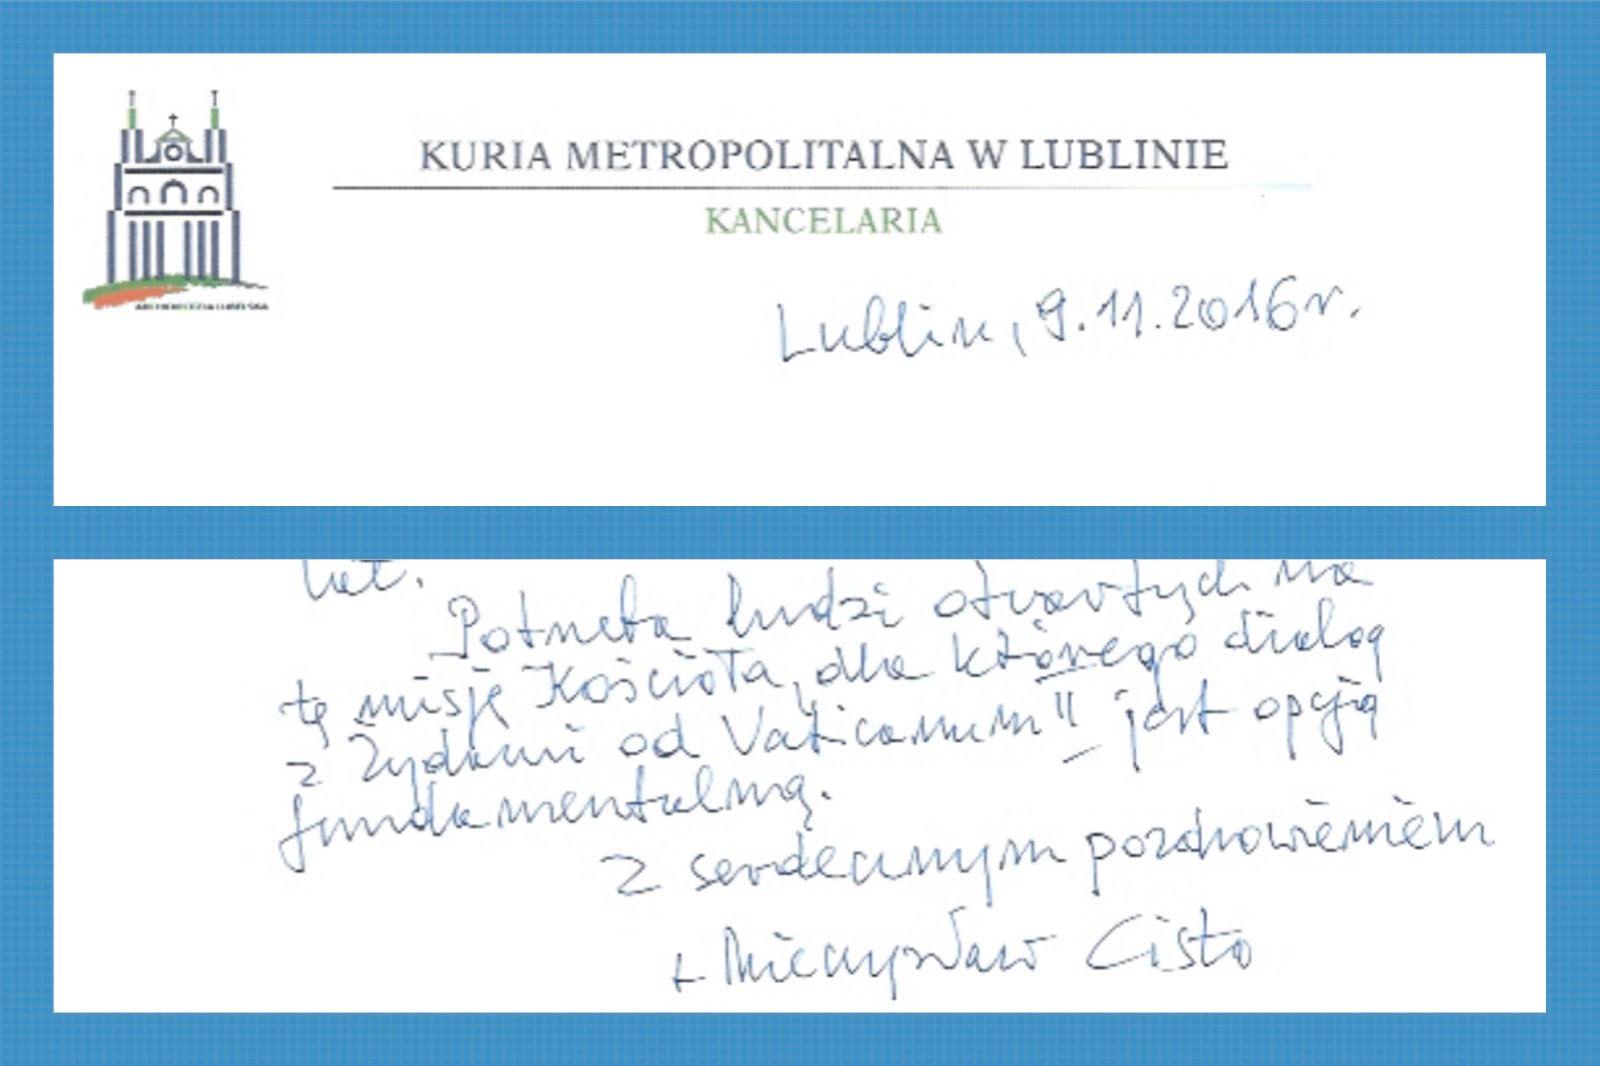 KURIA METROPOLITALNA W LUBLINIE
KANCELARIA
ARCHIDIECEZJA LUBELSKA
Lublin, 9.11.2016 r.
lat.
Potrzeba ludzi otwartych na
tę misję Kościoła, dla którego dialog
z Żydami od Vaticanum II jest opcją
fundamentalną.
Z serdecznym pozdrowieniem
+ Mieczysław Cisło